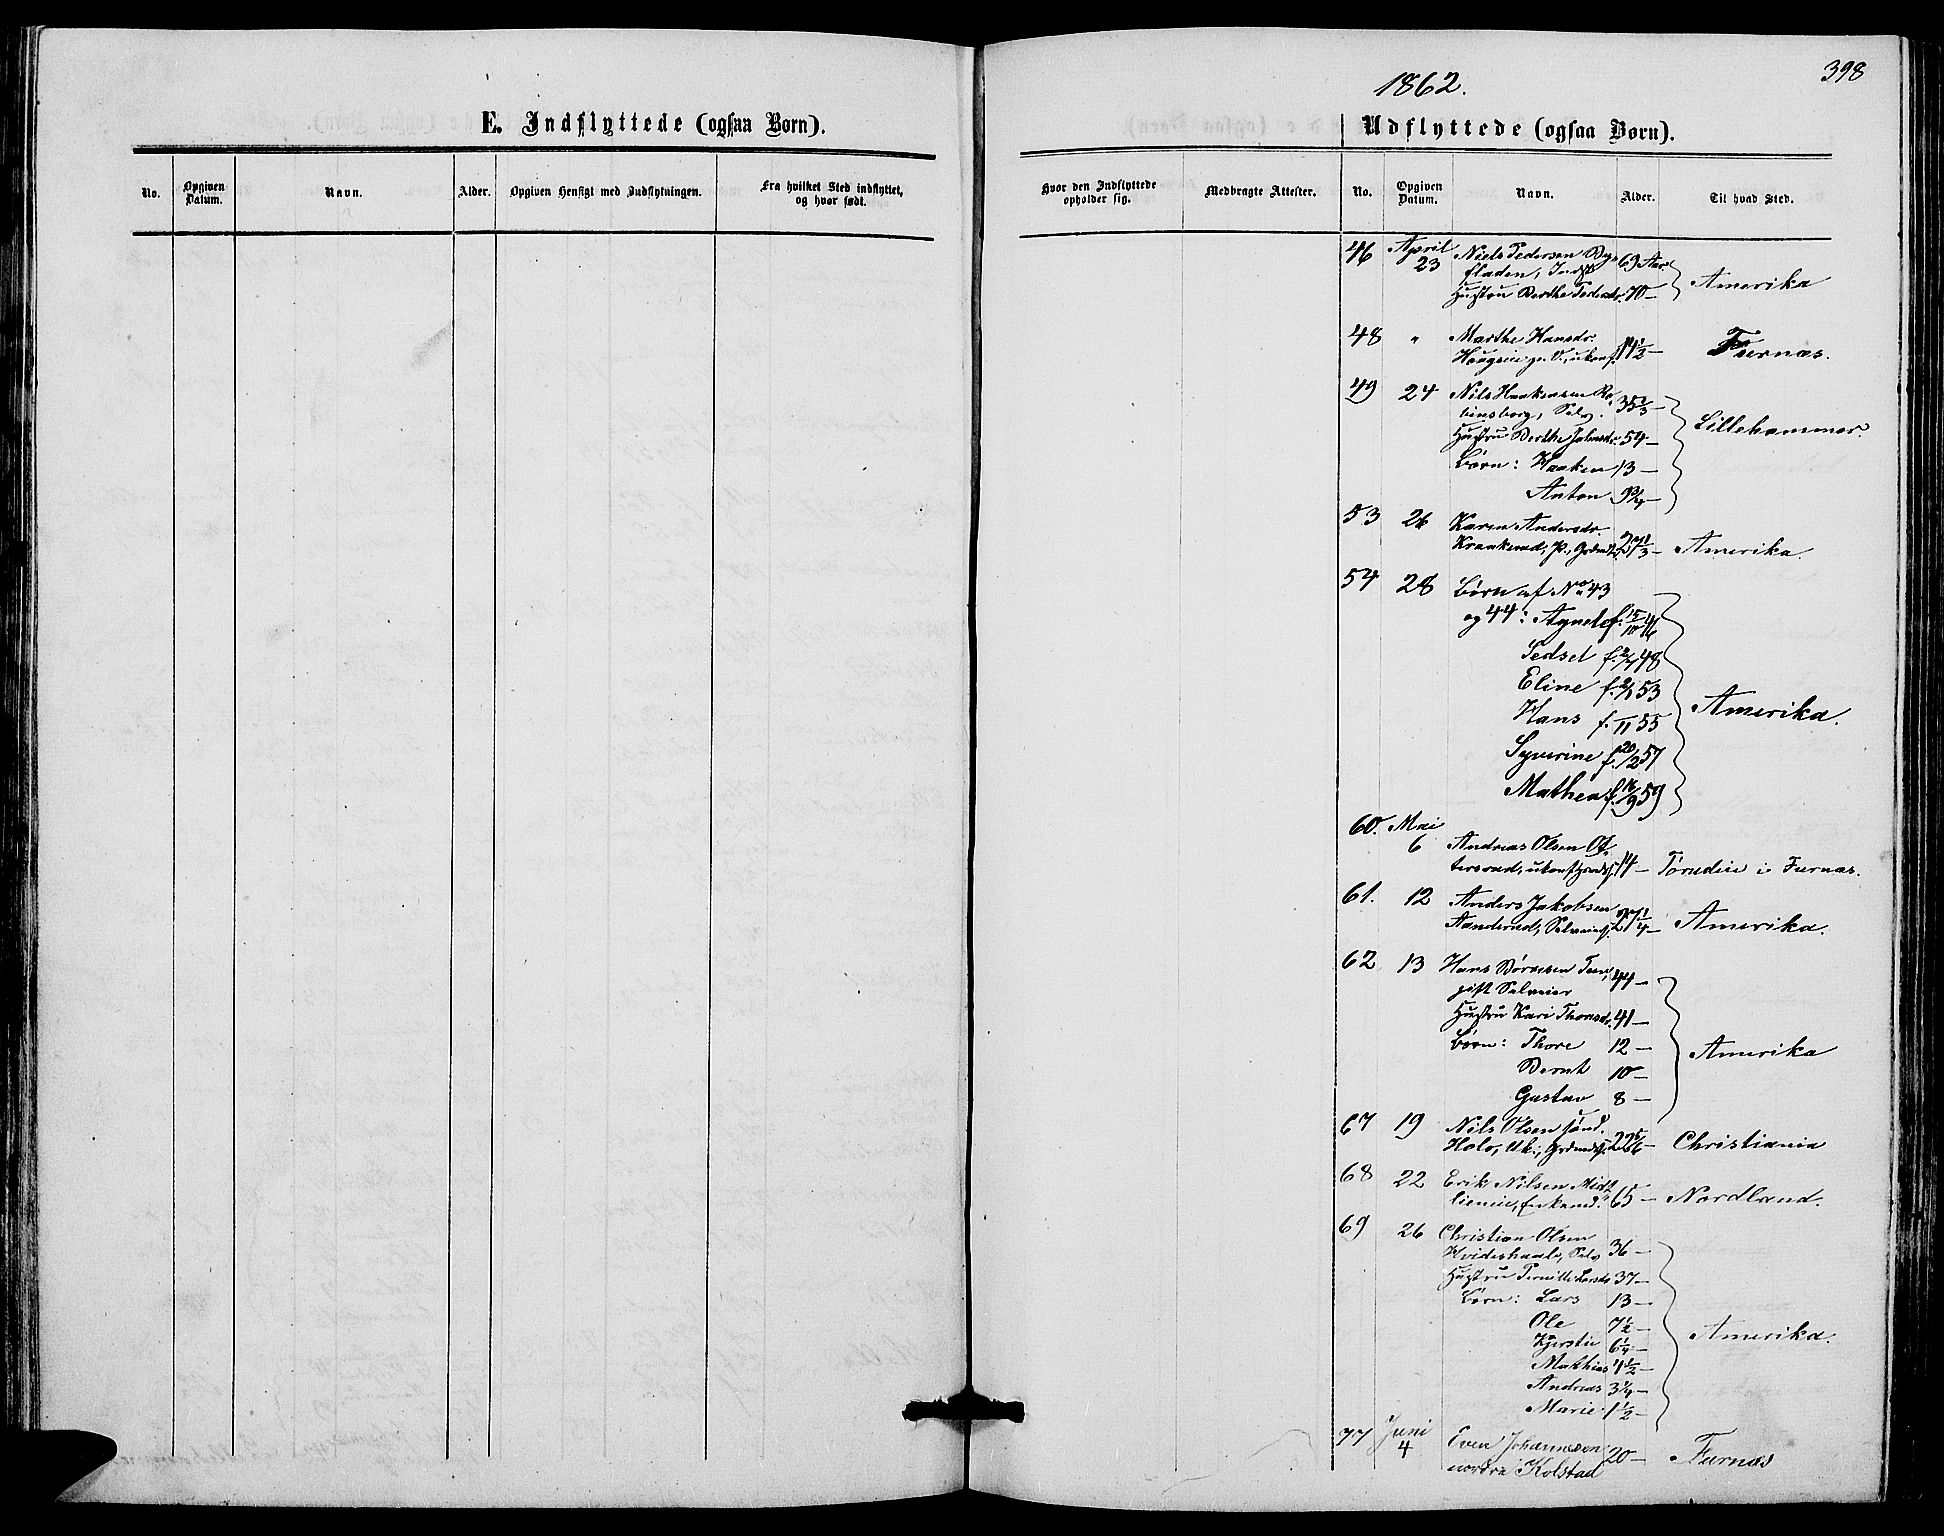 398
1862.
E. Indflyttede (ogsaa Børn).
Udflyttede (ogsaa Børn).
No.
Opgiven Datum.
Navn.
Alder.
Opgiven Hensigt med Indflytningen.
Fra hvilket Sted indflyttet, og hvor født.
Hvor den Indflyttede opholder sig.
Medbragte Attester.
No.
Opgiven Datum.
Navn.
Alder.
Til hvad Sted.
46 April 23 Niels Pedersen 69 Aar
fladen, Indst
Hustru Berthe Pedersdr. 70 — Amerika
48 " Marthe Hansdr.
ukonf. 14½ — Furnæs.
49 24 Nils Haakensen Ro-
binsborg, Selv. 35⅓ —
Hustru Berthe Johnsdr. 54 — Lillehammer.
Børn: Haaken 13 —
Anton 9¾ —
53 26 Karen Andersdr.
P., Grdmdt. 27⅓ — Amerika.
54 28 Børn af No 43
og 44: Agnete f. 15/10 46
Sedsel f. 2/7 48
Eline f. 2/1 53
Hans f. /11 55 Amerika.
Syverine f. 20/2 57
Mathea f. 14/9 59
60. Mai
6 Andreas Olsen Ot-
tersrud, ukonf. 14 — i Furnæs.
61. 12 Anders Jakobsen
Aanderud, Selveiers. 27¼ — Amerika.
62 13 Hans Børresen 44 —
gift Selveier
Hustru Kari Thoresdr. 41 —
Børn: Thore 12 — Amerika
Bernt 10 —
Gustav 8 —
67 19 Nils Olsen sönd.
Holo, Uk., Grdmds. 22⅚ — Christiania
68 22 Erik Nilsen Midt-
lieneie, Enkemd. 65 — Nordland.
69 26 Christian Olsen
Selv 36 —
Hustru Pernille Larsdr 37 —
Børn: Lars 13 —
Ole 7½ —
Kjerstie 6¼ — Amerika.
Mathias 4½ —
Andreas 3¼ —
Marie 1½ —
77 Juni 4 Even Johannesen
nordre Kolstad 20 — Furnæs